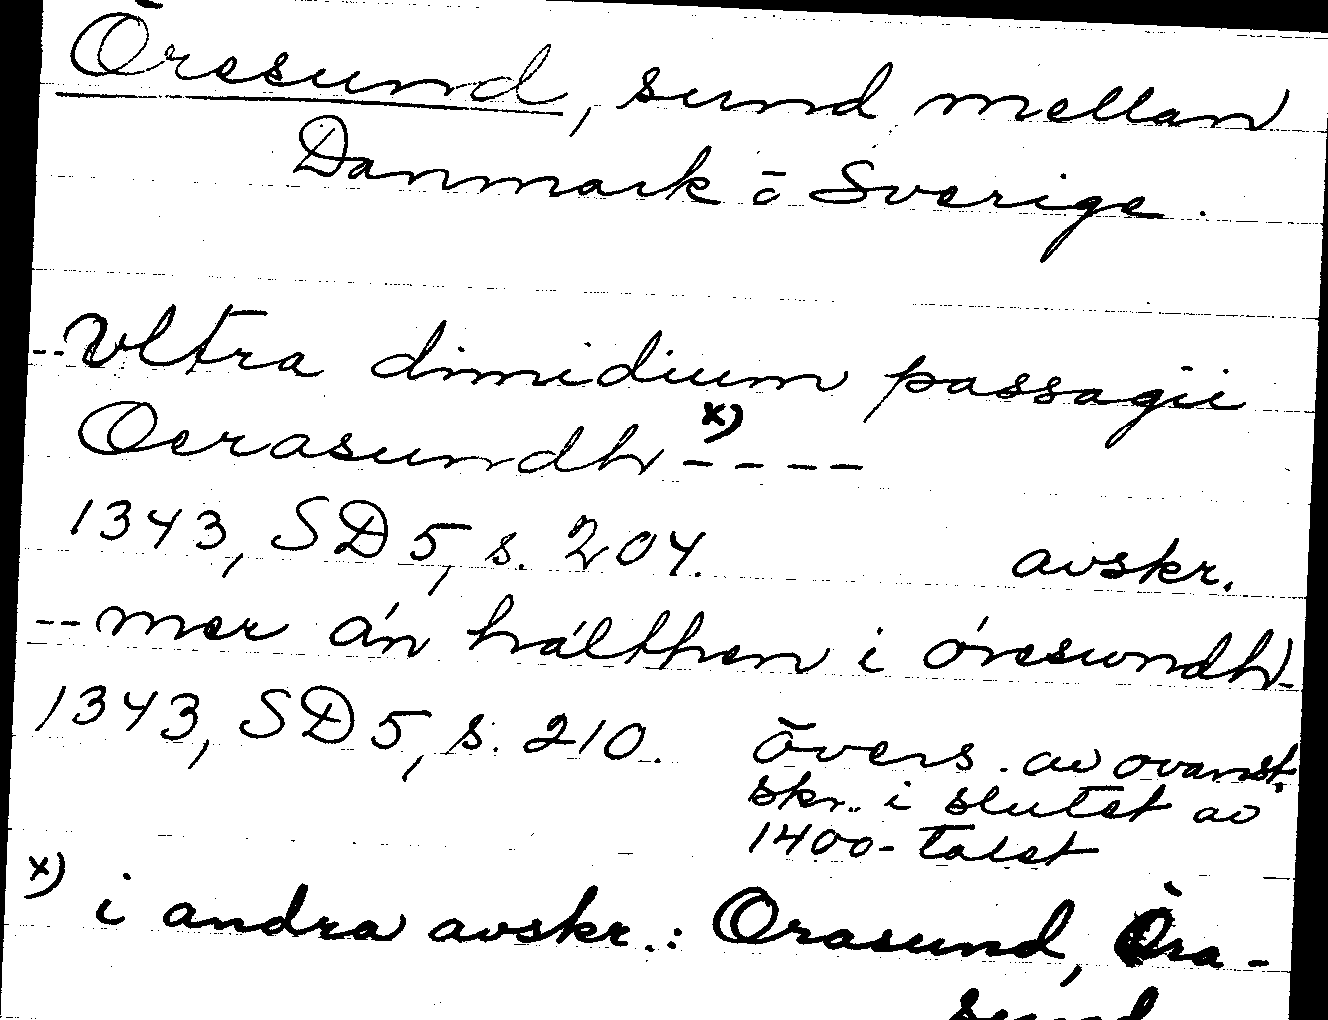 Öresund, sund mellan
Danmark o Sverige.
--Vltra dimidium passagii
Oerasundh x) ----
1343, SD 5, s. 204. avskr.
--mer án hálfthen i óresundh--
1343, SD 5, s. 210. övers. av ovanst.
skr. i slutet av
1400-talet
x) i andra avskr.: Orasund, Öra-
sund